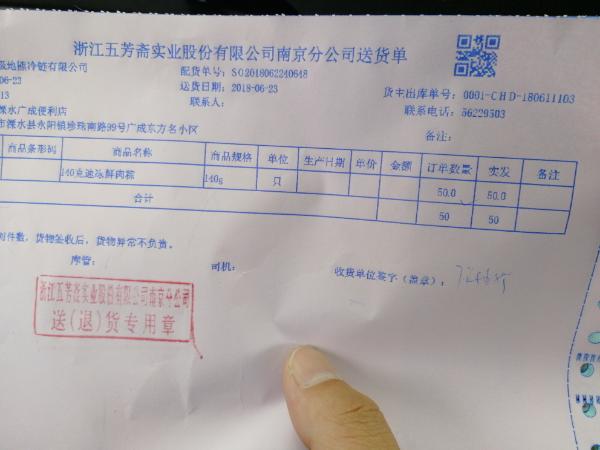 浙江五芳斋实业股份有限公司南京分公司送货单
极地熊冷链有限公司
配货单号：SO2018062240648
06-23
送货日期：2018-06-23
货主出库单号：0001-CHD-180611103
13
联系人：
联系电话：56229503
溧水广成便利店
备注：
市溧水县永阳镇珍珠南路99号广成东方名小区
商品条形码 商品名称 商品规格 单位 生产日期 单价 金额 订单数量 实发 备注
140克速冻鲜肉粽 140g 只 50.0 50.0
合计 50 50
对件数，货物签收后，货物异常不负责。
库管： 司机： 收货单位签字（盖章）：
浙江五芳斋实业股份有限公司南京分公司
送（退）货专用章